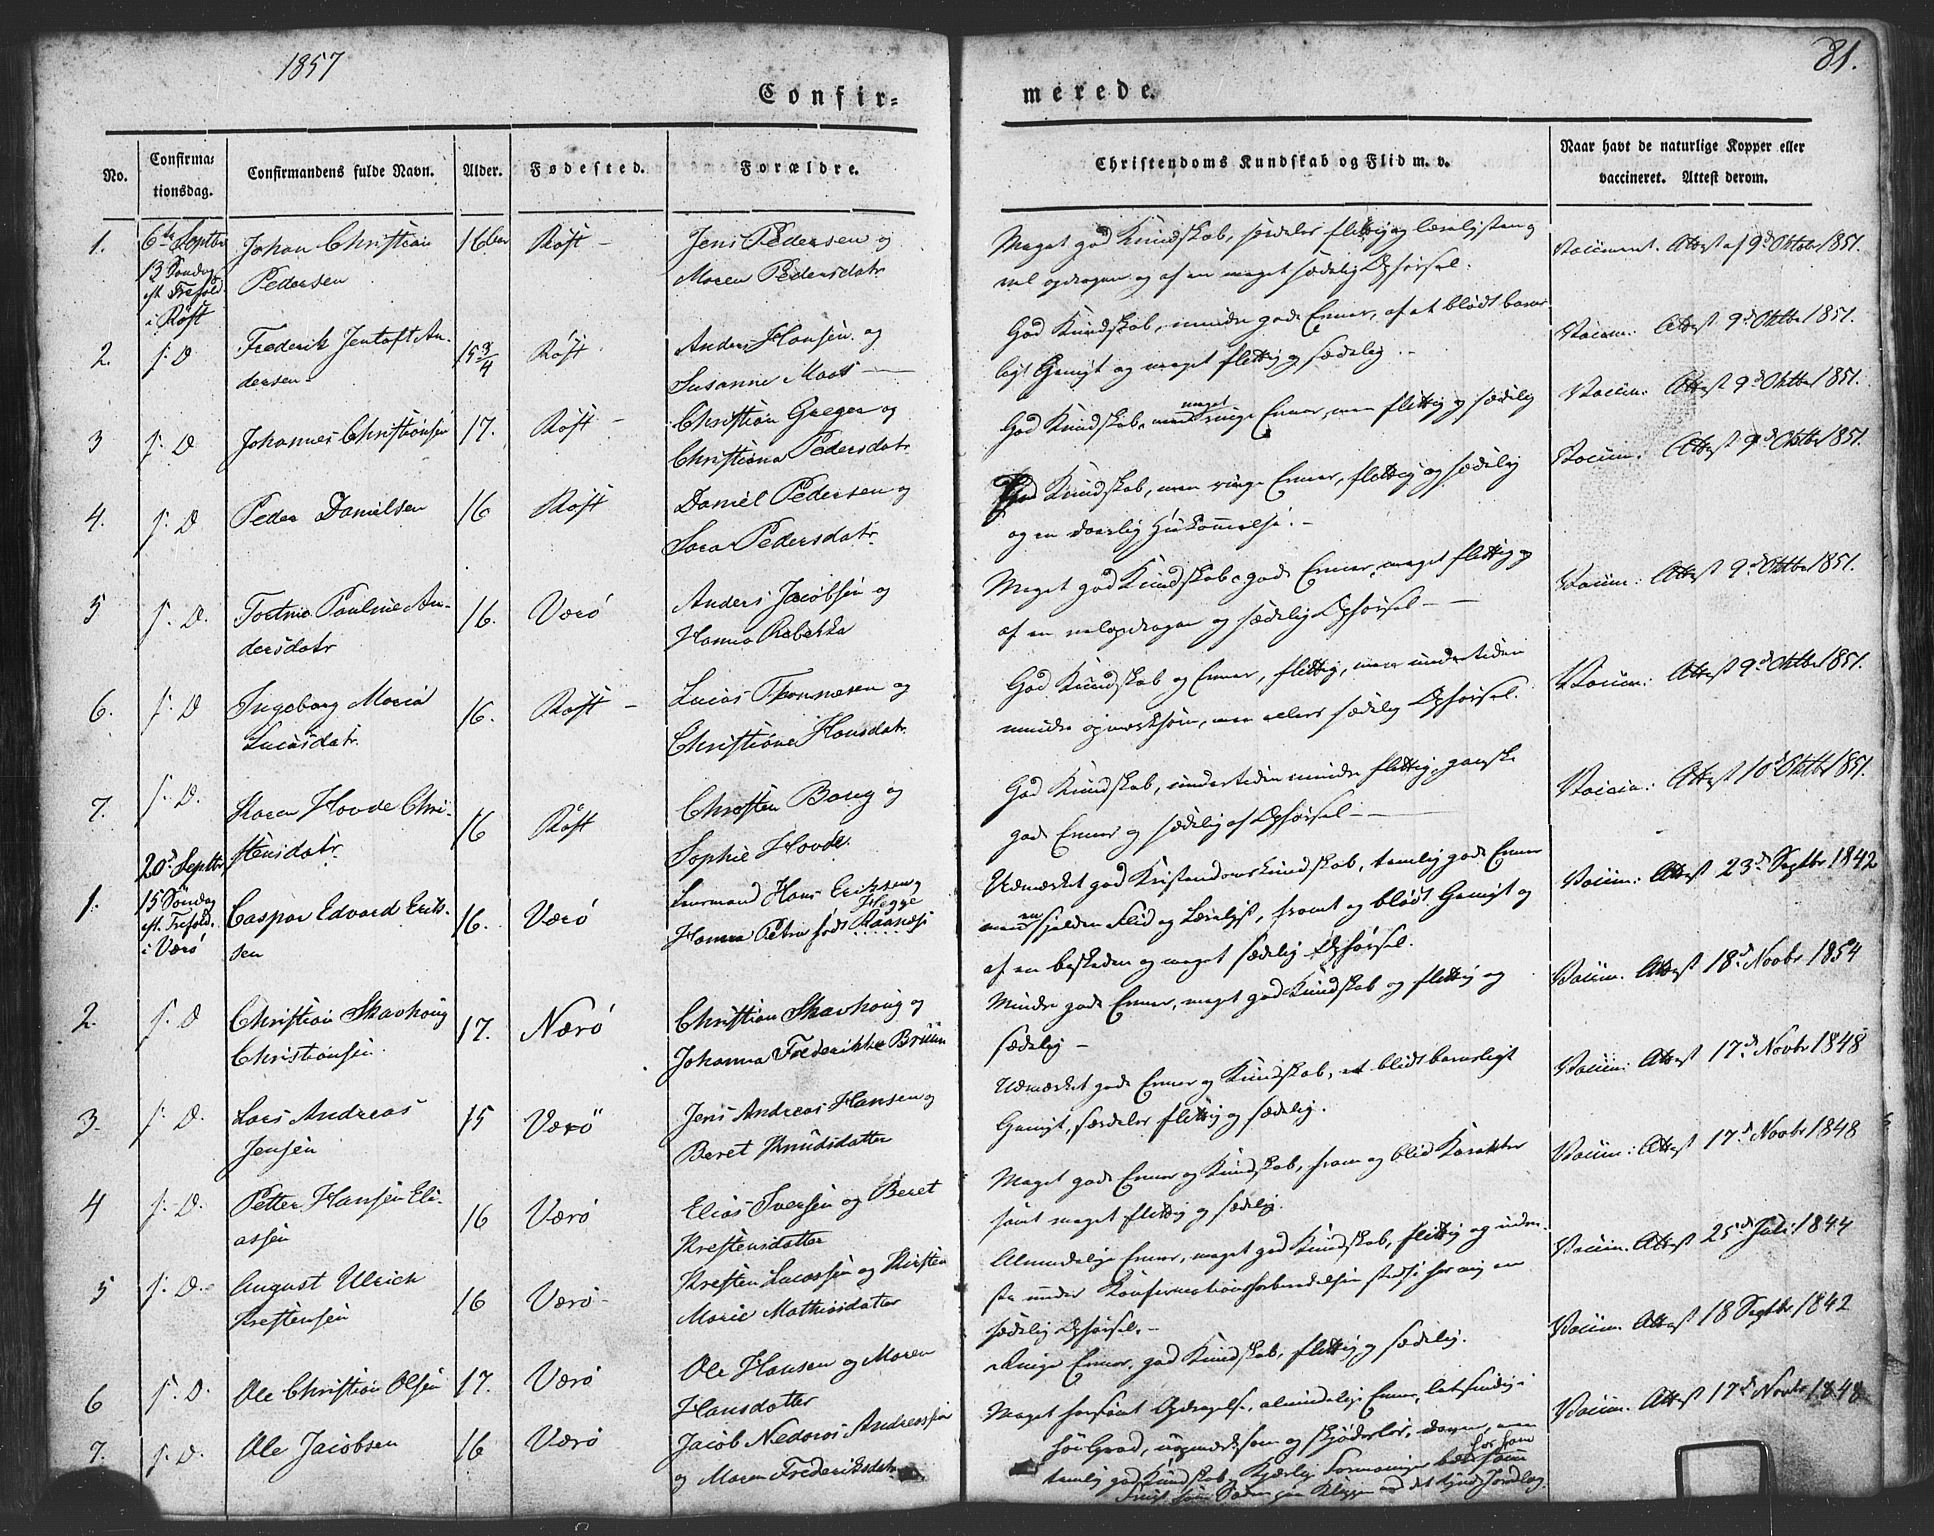 1857
81.
Confir-
merede.
No.
Confirma-
tionsdag.
Confirmandens fulde Navn.
Alder.
Fødested.
Forældre.
Christendoms Kundskab og Flid m. v.
Naar havt de naturlige Kopper eller
vaccineret. Attest derom.
1.
6te Septbr
13 Søndag
eft. Trefold.
i Røst
Johan Christian
Pedersen
16
Røst
Jens Pedersen og
Maren Pedersdatr
Meget god Kundskab, særdeles flittig og
vel opdragen og af en meget sædelig Opførsel.
Attest af 9d Oktobr 1851.
2.
s. D
Frederik Jentoft An-
dersen
15 3/4
Røst
Anders Hansen og
Susanne Moos
God Kundskab, mindre gode Evner, af et blødt barn-
ligt Gemyt og meget flittig og sædelig.
Vaccin: Attest 9d Oktbr 1851.
3
s. D
Johannes Christiansen
17.
Røst
Christian Greger og
Christiana Pedersdatr
God Kundskab, meget ringe Evner, men flittig og sædelig
Vaccin: Attest 9d Oktbr 1851.
4.
s. D
Peder Danielsen
16
Røst
Daniel Pedersen og
Sara Pedersdatr
God Kundskab, men ringe Evner, flittig og sædelig
og en daarlig Hukommelse.
Vaccin: Attest 9d Oktbr 1851.
5
s. D.
Pauline An-
dersdatr
16.
Værø
Anders Jacobsen og
Hanna Rebekka
Meget god Kundskab, gode Evner, meget flittig og
af en velopdragen og sædelig Opførsel
Vaccin: Attest 9d Oktbr 1851.
6.
s. D
Ingeborg Maria
Lucasdatr.
16.
Røst
Lucas Thomæsen og
Christiane Hansdatr.
God Kundskab og Evner, flittig, men undertiden
mindre opmærksom, men ellers sædelig Opførsel.
Vaccin: Attest 9d Oktbr 1851.
7.
s. D.
Karen Hovde Chri-
stensdatr
16
Røst
Christen Borg og
Sophie Hovde.
God Kundskab, undertiden mindre flittig, ganske
gode Evner og sædelig af Opførsel
Vaccin: Attest 10d Oktbr 1851.
1.
20d Septbr
15 Søndag
eft. Trefold.
i Værø
Caspar Edvard Erik-
sen
16.
Værø
Hans Eriksen og
Hanna Petra født Hegge
Udmærket god Kristendomskundskab, temlig gode Evner
men en sjelden Flid og Lærelyst, fromt og blødt Gemyt og
af en beskeden og meget sædelig Opførsel.
Vaccin: Attest 23d Septbr 1842
2.
s. D
Christian Skavhoug
Christiansen
17.
Nærø
Christian Skavhoug og
Johanna Frederikke Bruun
Mindre gode Evner, meget god Kundskab og flittig og
sædelig
Vaccin. Attest 18d Novbr 1854
3.
s. D.
Lars Andreas
Jensen
15
Værø
Jens Andreas Hansen og
Beret Knudsdatter
Udmærket gode Evner og Kundskab, et blidt barnligt
Gemyt, særdeles flittig og sædelig.
Vaccin: Attest 17d Novbr 1848
4
s. D.
Petter Hansen Eli-
assen
16
Værø
Elias Iversen og Beret
Krestensdatter
Meget gode Evner og Kundskab, from og blid Karakter
samt meget flittig og sædelig.
Vaccin: Attest 17d Novbr 1848
5
s. D.
August Ulrich
Krestensen
16
Værø
Kresten Lucassen og Kirsten
Marie Mathiasdatter
Almindelige Evner, meget god Kundskab, flittig og
under Konfirmationsforberedelsen
sædelig Opførsel.
Vaccin. Attest 25d Juli 1844
6
s. D.
Ole Christian Olsen
17.
Værø
Ole Hansen og Maren
Hansdatter
Ringe Evner, god Kundskab, flittig og sædelig.
Vaccin. Attest 18 Septbr 1842
7.
s. D.
Ole Jacobsen
16
Værø
Jacob Andreassen
og Maren Frederiksdatr
Meget forsømt Opdragelse, almindelige Evner, letsindig i
høi Grad, uopmærksom og skjødesløs,
temlig god Kundskab
Vaccin. Attest 17d Novbr 1848